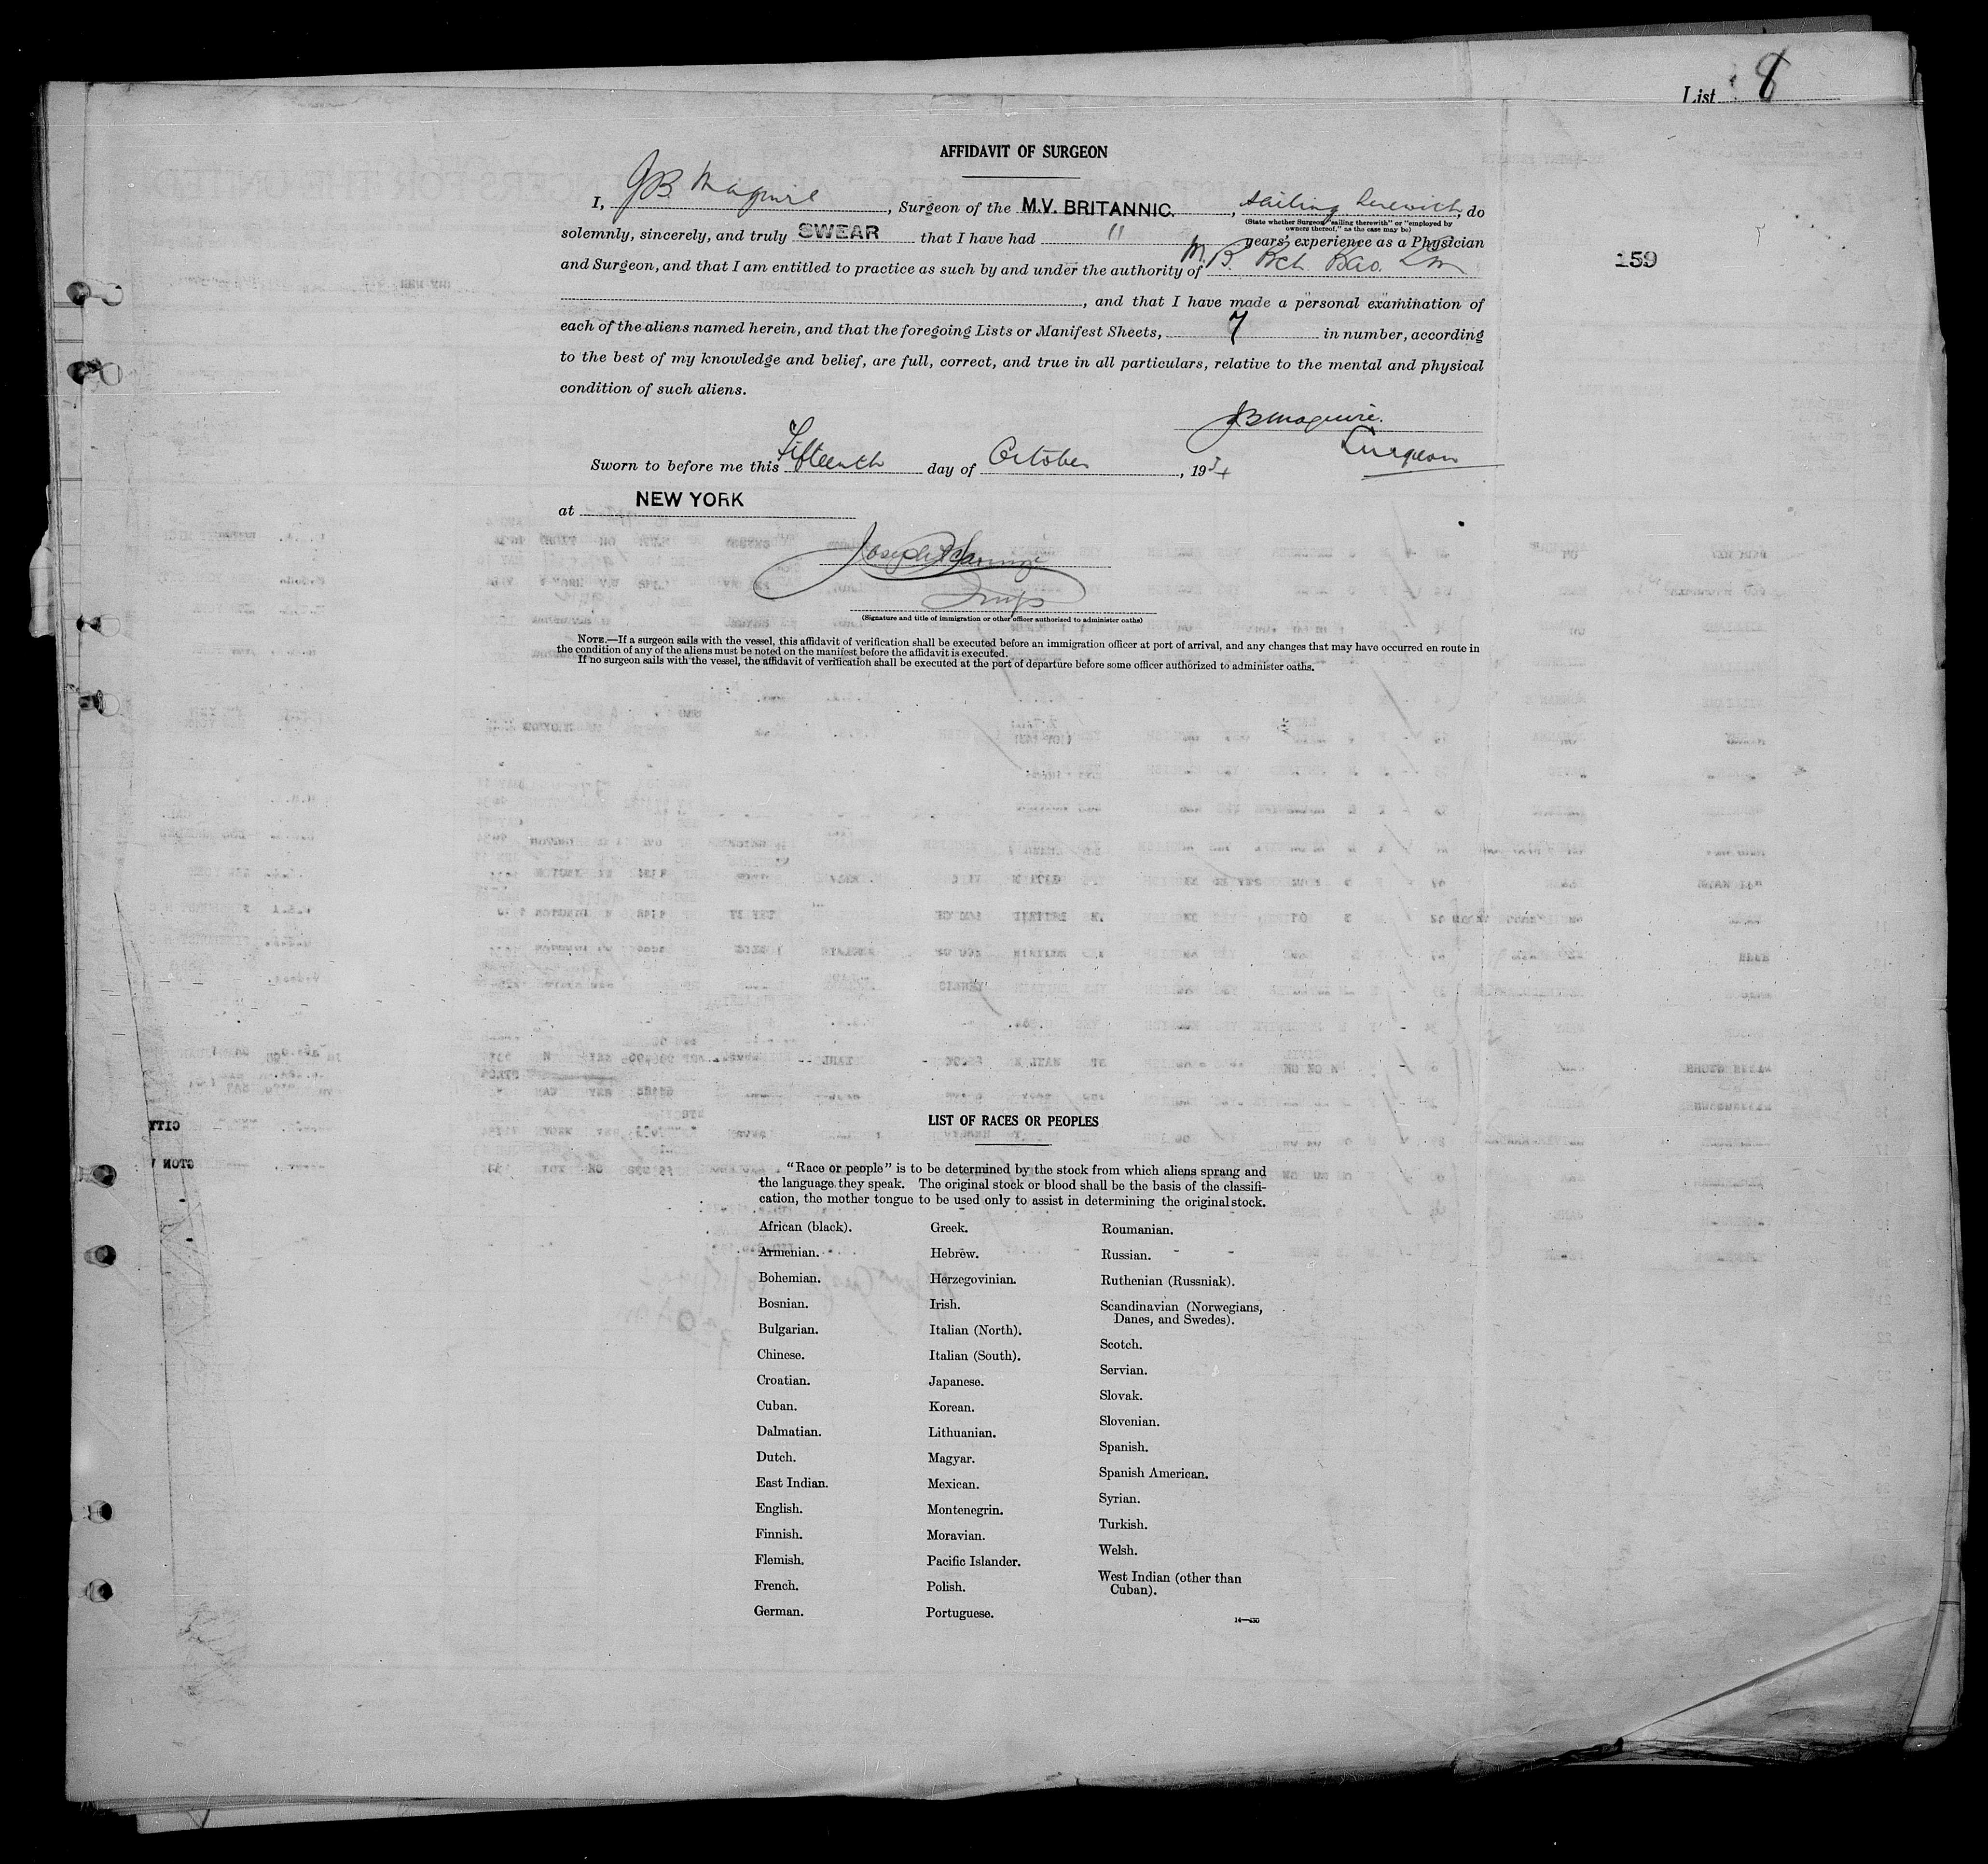 List 8
AFFIDAVIT OF SURGEON
I, JB Maguire, Surgeon of the M.V. BRITANNIC., sailing herewith, do
(State whether Surgeon "sailing therewith" or "employed by
owners thereof," as the case may be)
solemnly, sincerely, and truly SWEAR that I have had 11 years' experience as a Physician
159
and Surgeon, and that I am entitled to practice as such by and under the authority of M.B. Bch. Bao. Lm
, and that I have made a personal examination of
each of the aliens named herein, and that the foregoing Lists or Manifest Sheets, 7 in number, according
to the best of my knowledge and belief, are full, correct, and true in all particulars, relative to the mental and physical
condition of such aliens.
JB Maguire.
Surgeon
Sworn to before me this Fifteenth day of October, 1934
at NEW YORK
Joseph
Insp
(Signature and title of immigration or other officer authorized to administer oaths)
NOTE.—If a surgeon sails with the vessel, this affidavit of verification shall be executed before an immigration officer at port of arrival, and any changes that may have occurred en route in
the condition of any of the aliens must be noted on the manifest before the affidavit is executed.
If no surgeon sails with the vessel, the affidavit of verification shall be executed at the port of departure before some officer authorized to administer oaths.
LIST OF RACES OR PEOPLES
"Race or people" is to be determined by the stock from which aliens sprang and
the language they speak. The original stock or blood shall be the basis of the classifi-
cation, the mother tongue to be used only to assist in determining the original stock.
African (black).
Armenian.
Bohemian.
Bosnian.
Bulgarian.
Chinese.
Croatian.
Cuban.
Dalmatian.
Dutch.
East Indian.
English.
Finnish.
Flemish.
French.
German.
Greek.
Hebrew.
Herzegovinian.
Irish.
Italian (North).
Italian (South).
Japanese.
Korean.
Lithuanian.
Magyar.
Mexican.
Montenegrin.
Moravian.
Pacific Islander.
Polish.
Portuguese.
Roumanian.
Russian.
Ruthenian (Russniak).
Scandinavian (Norwegians,
Danes, and Swedes).
Scotch.
Servian.
Slovak.
Slovenian.
Spanish.
Spanish American.
Syrian.
Turkish.
Welsh.
West Indian (other than
Cuban).
14—430